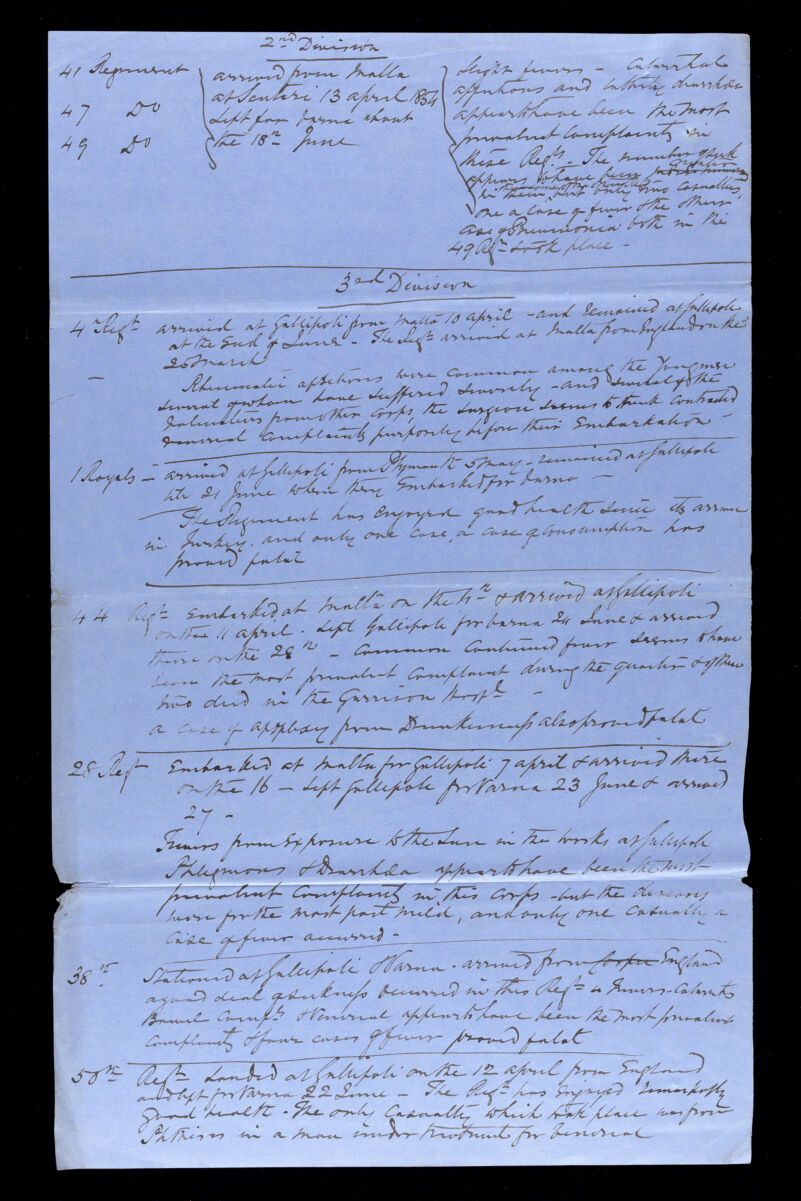 2nd Division
41 Regiment
47 Do
49 Do
arrived from Malta
at Scutari 13 april 1854
left for Varna about
the 18th June
slight fevers - Catarrhal
affections and diarrhœa
appears to have been the most
prevalent Complaints in
these Regts. - The number of sick
appears to have been
in them but only two casualties,
one a Case of fever & the other a
case of Pneumonia both in the
49 Regt took place -
3rd Division
4th Regt arrived at Gallipoli from Malta 10 april - and remained at Gallipoli
at the End of June - The Regt arrived at Malta from England on the
25 March
Rheumatic affections were common among the Young men
several of whom have suffered severely - and several of the
Volunteers from other Corps, the surgeon seems to think contracted
venereal complaints purposely before their Embarkation
1 Royals - arrived at Gallipoli from Plymouth 5 May - remained at Gallipoli
till 21 June when they Embarked for Varna -
The Regiment has enjoyed good health since its arrival
in Turkey. and only one case, a case of Consumption has
proved fatal
44 Regt Embarked at Malta on the 4th & arrived at Gallipoli
on the 11 april. left Gallipoli for Varna 24 June & arrived
there on the 28th - Common Continued fever seems to have
been the most prevalent Complaint during the quarter & of them
two died in the Garrison Hospl -
a case of apoplexy from Drunkenness also proved fatal
28 Regt Embarked at Malta for Gallipoli 7 april & arrived there
on the 16 - left Gallipoli for Varna 23 June & arrived
27 -
Fevers from Exposure to the Sun in the works at Gallipoli
Phlegmons & Diarrhœa appears to have been the most
prevalent Complaints in this Corps - but the diseases
were for the most part mild, and only one Casualty a
Case of fever occurred -
38th Stationed at Gallipoli & Varna - arrived from Corfu England
a good deal of sickness occurred in this Regt Fevers - Catarrhs
Bowel Compts & Venereal appears to have been the most prevalent
Complaints & four cases of fever proved fatal
50th Regt Landed at Gallipoli on the 12 april from England
and left for Varna 22 June - The Regt has Enjoyed remarkably
good health. The only Casualty which took place was from
Phthisis in a man under treatment for venereal